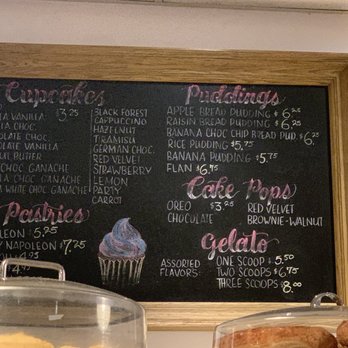 Cupcakes
VANILLA $3.25
CHOC.
CHOC.
VANILLA
BUTTER
CHOC GANACHE
CHOC GANACHE
WHITE CHOC GANACHE
BLACK FOREST
CAPPUCCINO
HAZELNUT
TIRAMISU
GERMAN CHOC.
RED VELVET
STRAWBERRY
LEMON
PARTY
CARROT
Pastries
$5.25
NAPOLEON $7.25
$4.95
Puddings
APPLE BREAD PUDDING $6.25
RAISIN BREAD PUDDING $6.25
BANANA CHOC CHIP BREAD PUD. $6.25
RICE PUDDING $5.75
BANANA PUDDING $5.75
FLAN $6.95
Cake Pops
OREO $3.25 RED VELVET
CHOCOLATE BROWNIE-WALNUT
Gelato
ASSORTED FLAVORS:
ONE SCOOP $5.50
TWO SCOOPS $6.75
THREE SCOOPS $8.00